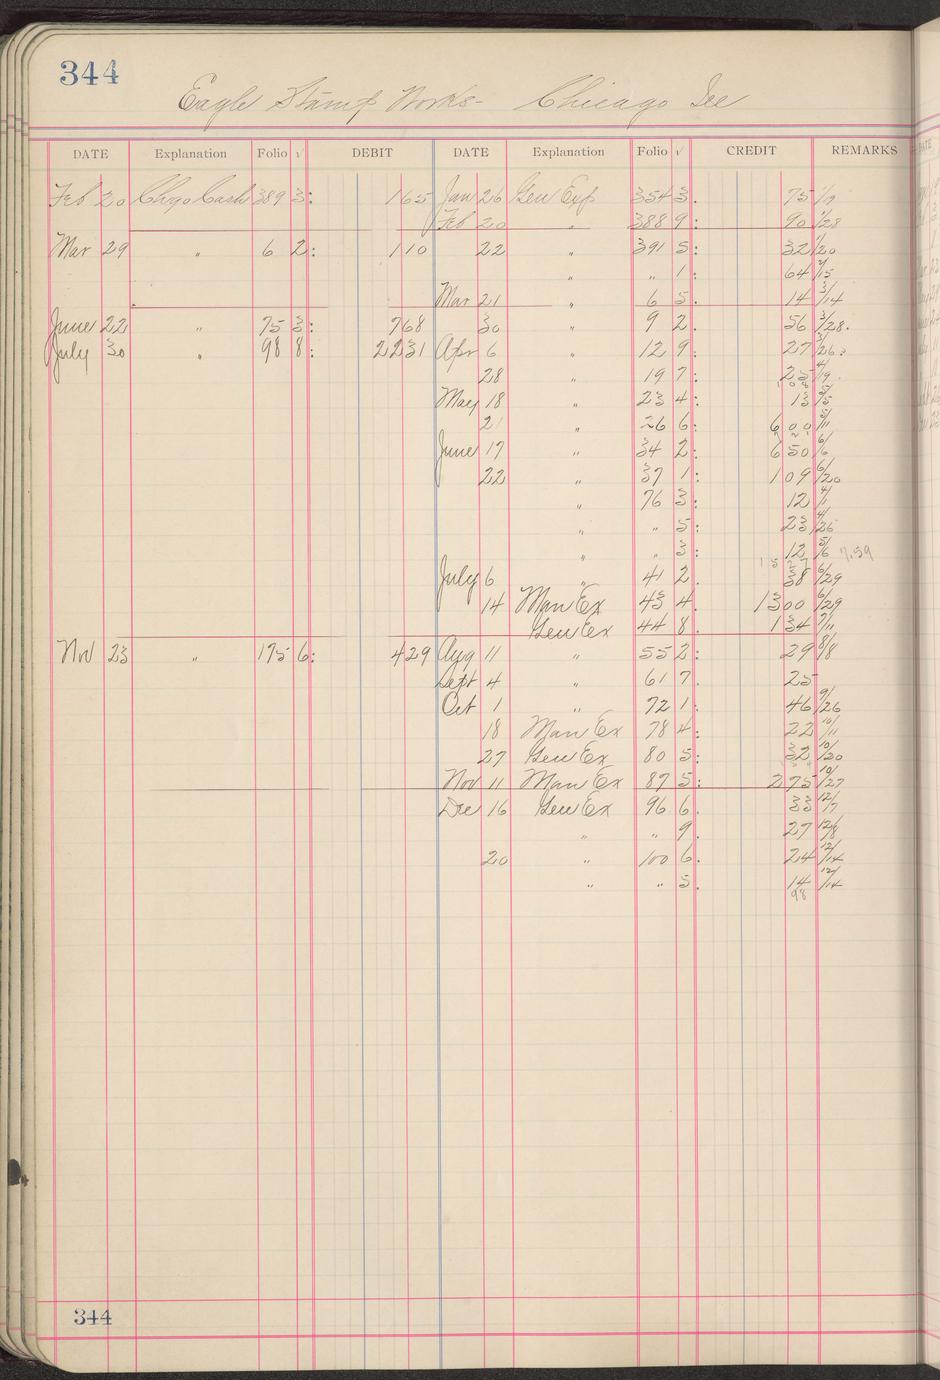 344
Eagle Stamp Works - Chicago Ill
DATE Explanation Folio √ DEBIT DATE Explanation Folio √ CREDIT REMARKS
Feb 20 Chgo Cash 389 3: 165 Jan 26 Gen Exp 354 3. 75 1/9
Feb 20 " 388 9: 90 1/28
Mar 29 " 6 2: 110 22 " 391 5: 32 1/20
" " 1: 64 2/15
Mar 21 " 6 5. 14 3/14
June 22 " 75 3: 768 30 " 9 2. 56 3/28.
July 30 " 98 8: 2231 Apr 6 " 12 9: 27 3/26
28 " 19 7: 25 4/19
May 18 " 23 4: 13 5/5
21 " 26 6: 6 00 5/11
June 17 " 34 2: 6 50 6/6
22 " 37 1: 1 09 6/20
" 76 3: 12 4/1
" " 5: 23 4/26
" " 3: 12 5/6 7.59
July 6 " 41 2. 38 6/29
14 Man Ex 43 4. 13 00 6/29
Gen Ex 44 8. 1 34 7/11
Nov 23 " 175 6: 429 Aug 11 " 55 2: 29 8/8
Sept 4 " 61 7. 25
Oct 1 " 72 1: 46 9/26
18 Man Ex 78 4: 22 10/11
27 Gen Ex 80 5: 32 10/20
Nov 11 Man Ex 87 5: 2 75 10/27
Dec 16 Gen Ex 96 6. 33 12/7
" " 9. 27 12/8
20 " 100 6. 24 12/14
" " 5. 14 12/14
98
344